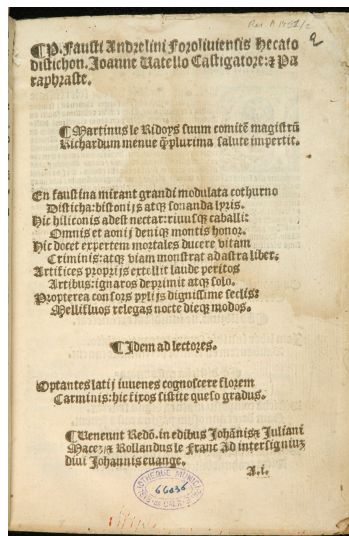 Res. A 1491/2
2
¶P. Fausti Andrelini Foroliuiensis Hecato
distichon. Ioanne Vatello Castigatore: ⁊ Pa
raphraste.
¶Martinus le Ridoys suum comitē magistrū
Richardum menue q̄plurima salute impertit.
En faustina mirant grandi modulata cothurno
Disticha: bistonijs atqȝ sonanda lyris.
Hic hiliconis adest nectar: riuusqȝ caballi:
Omnis et aonij deniqȝ montis honor.
Hic docet expertem mortales ducere vitam
Criminis: atqȝ viam monstrat ad astra liber.
Artifices proprijs extollit laude peritos
Artibus: ignaros deprimit atqȝ solo.
Propterea consors pylijs dignissime seclis:
Mellifluos relegas nocte dieqȝ modos.
¶Idem ad lectores.
Optantes latij iuuenes cognoscere florem
Carminis: hic fixos sistite queso gradus.
¶Veneunt Redoñ. in edibus Johānis⁊ Juliani
Macez/⁊ Rollandus le Franc Ad intersigniuȝ
diui Johannis euange.
A.i.
66036